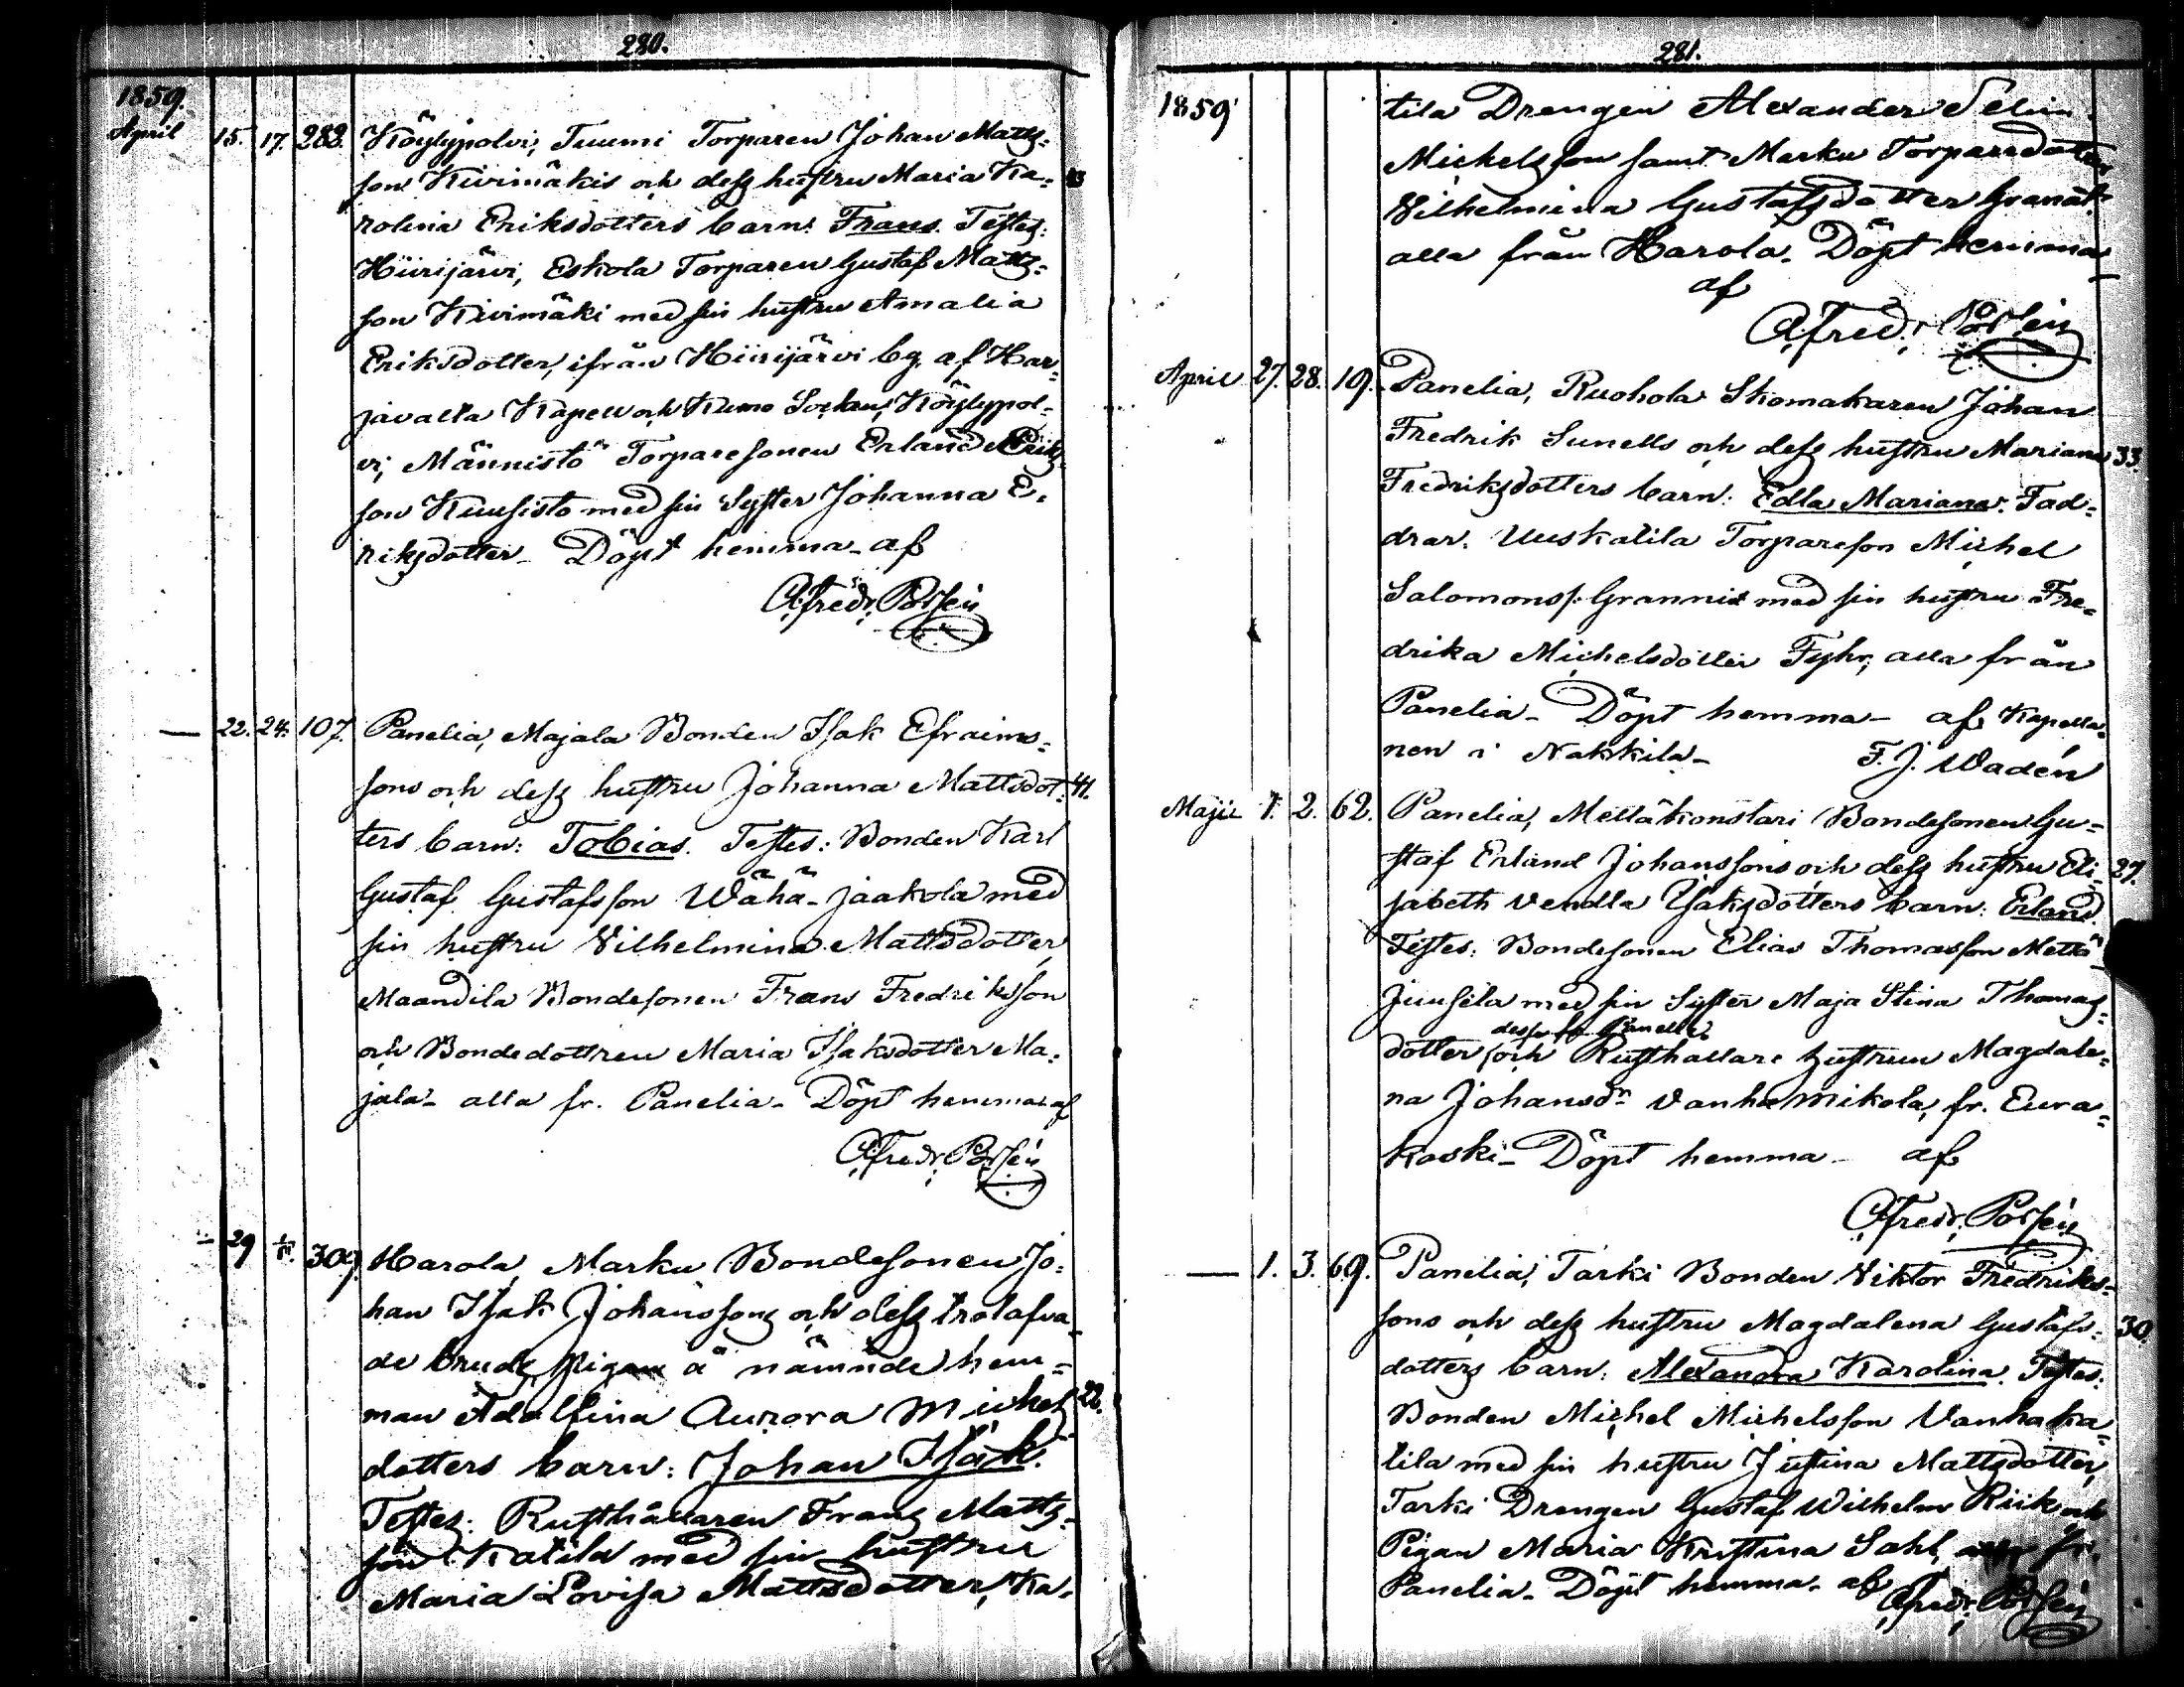 280.
1859.
April 15. 17. 282. Köylypolvi, Tuumi Torparen Johan Matts=
sons Kivimäkis och dess hustru Maria Ka= 43
rolina Eriksdotters barn: Frans. Testes:
Hiirijärvi, Eskola Torparen Gustaf Matts=
son Kivimäki med sin hustru Amalia
Eriksdotter, ifrån Hiirijärvi bg. af Har=
javalta Kapell och Kumo Socken, Köylypol=
vi, Männistö Torparesonen Erland Eriks=
son Kuusisto med sin Syster Johanna E=
riksdotter. Döpt hemma af
Alfredr. Porsén
— 22. 24. 107. Panelia, Majala Bonden Isak Efraims=
sons och dess hustru Johanna Mattsdot= 41.
ters barn: Tobias. Testes: Bonden Karl
Gustaf Gustafsson Wähä-Jaakola med
sin hustru Vilhelmina Mattsdotter,
Maandila Bondesonen Frans Fredriksson
och Bondedottren Maria Isaksdotter Ma=
jala - alla fr. Panelia - Döpt hemma af
Alfredr. Porsén
— 29 309. Harola, Marku Bondesonen Jo=
han Isak Johanssons och dess trolofva=
de brud, Pigan å nämnde hem=
man Adolfina Aurora Michels= 22.
dotters barn: Johan Isak.
Testes: Rusthållaren Frans Matts=
son Katila med sin hustru
Maria Lovisa Mattsdotter, Ka=
281.
1859
tila Drengen Alexander Selim
Michelsson samt Marku Torparedottren
Vilhelmina Gustafsdotter Granat
alla från Harola. Döpt hemma
af
Alfredr. Porsén
April 27. 28. 19. Panelia, Ruohola Skomakaren Johan
Fredrik Sunells och dess hustru Mariana 33.
Fredriksdotters barn: Edla Mariana. Fad=
drar: Uuskatila Torpareson Michel
Salomonss: Grannix med sin hustru Fre=
drika Michelsdotter Fyhr, alla från
Panelia - Döpt hemma - af Kapella=
nen i Nakkila - F. J. Wadén
Maji 1. 2. 62. Panelia, Mettäkonstari Bondesonen Gu=
staf Erland Johanssons och dess hustru Eli= 27.
sabeth Vendla Isaksdotters barn: Erland.
Testes: Bondesonen Elias Thomasson Mettä
Juusela med sin Syster Maja Stina Thomas=
dessa fr Panelia
dotter och Rusthållare hustrun Magdale=
na Johansdr Vanhamikola, fr. Eura=
koski - Döpt hemma - af
Alfredr. Porsén
— 1. 3. 69. Panelia, Tarki Bonden Viktor Fredriks=
sons och dess hustru Magdalena Gustafs= 30
dotters barn: Alexandra Karolina. Testes:
Bonden Michel Michelsson Vanhaka=
tila med sin hustru Justina Mattsdotter,
Tarki Drengen Gustaf Wilhelm Riik och
Pigan Maria Kristina Sahl, alla fr.
Panelia - Döpt hemma - af Alfredr. Porsén